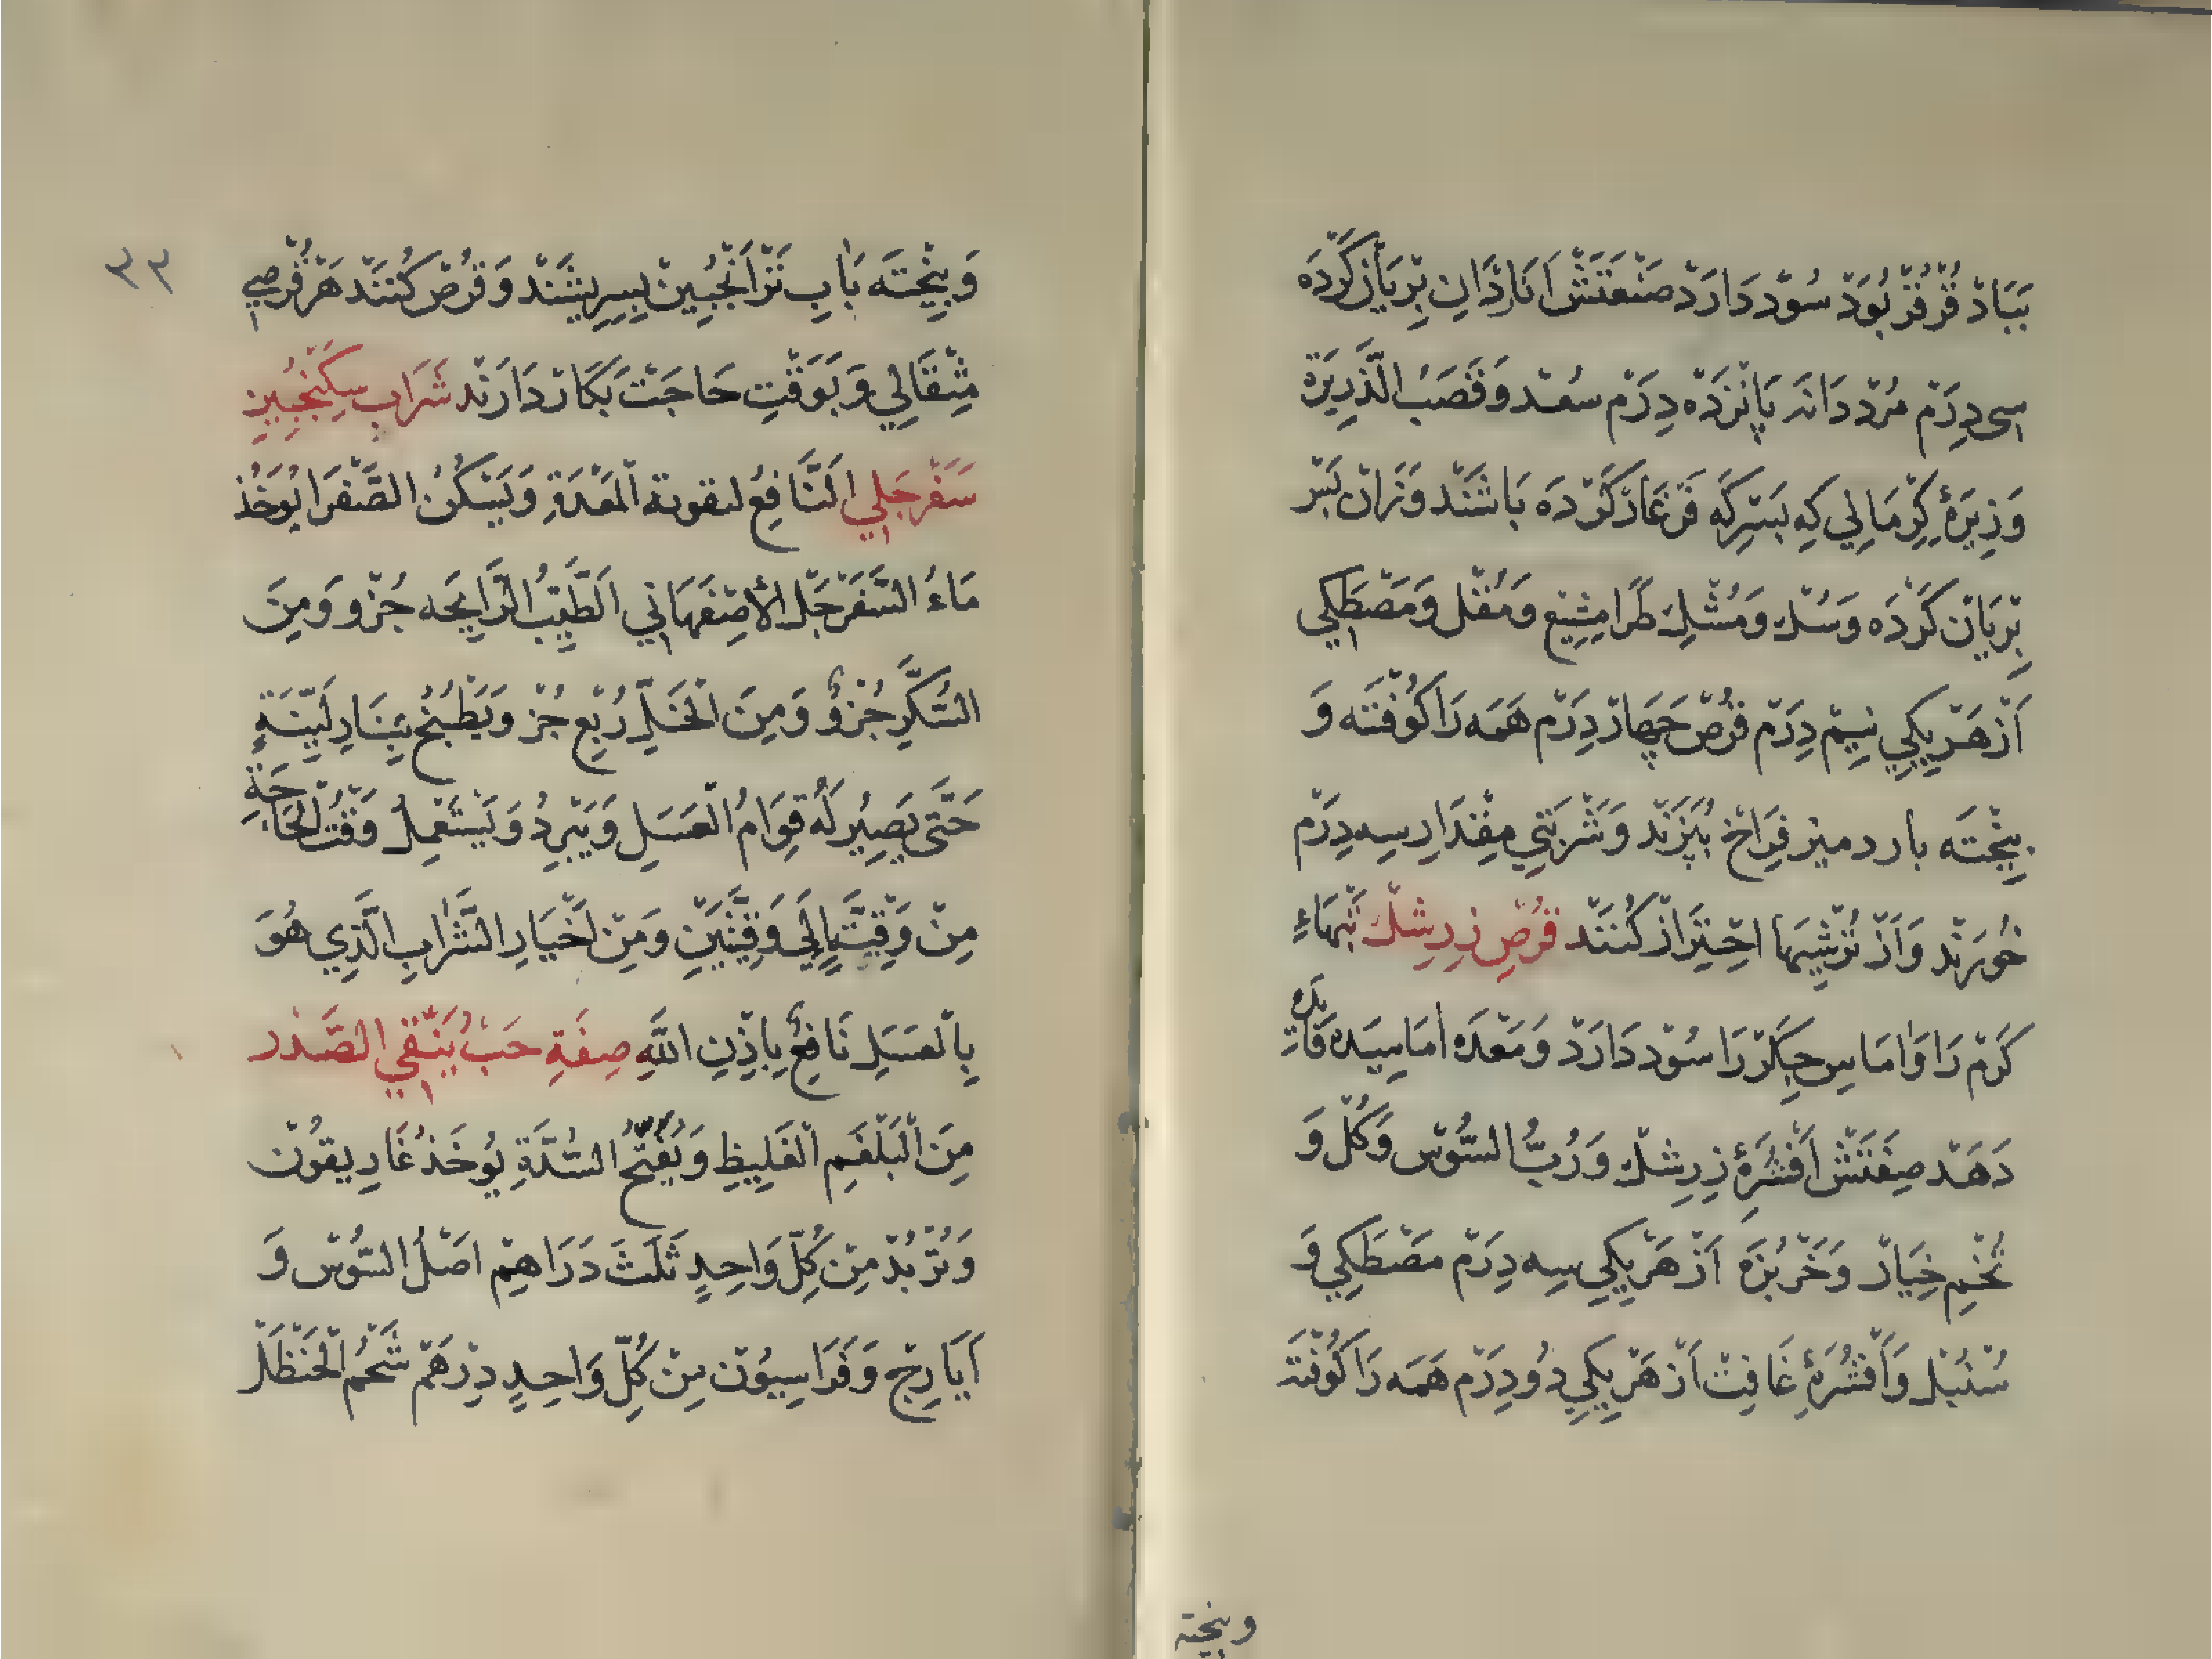 بَبَادْ قُرْقُرْ بُوَدْ سُوْد دَارَدْ صَنْعَتَشْ اَنَارْدَانِ بِرْيَانْ كَرْدَه
سِی دِرَمْ مُرْد دَانَه پَانْزَدَه دِرَمْ سُعْد وَقَصَبُ الذَّرِيْرَة
وَزِيْرَهٔ كِرْمَانِي كِه بَسِرْكَه فَرْغَارْ كَرْدَه بَاشَنْد وَزَانْ بَسْ
بِرْيَانْ كَرْدَه وَسُكْ وَمُشْكِ طَرَامِشِيْع وَمُقْل وَمَصْطَكِي
اَزْ هَرْ يِكِي نِيمْ دِرَمْ قُرْص چَهَارْ دِرَمْ هَمَه رَا كُوْفْتَه وَ
بِيْخْتَه بار دميز فِرَاخْ بُپَزَنْد وَشَرْبَتِي مِقْدَارِ سِه دِرَمْ
خُورَنْد وَاَزْ تُرْشِيهَا احْتِرَازْ كُنَنْد قُرْصِ زِرِشْك تَبْهَاءِ
كَرْم رَا وَامَاسِ جِكَرْ رَا سُوْد دَارَدْ وَمَعْدَه امَاسِيَده فَايِدَه
دَهَد صِفَتَشْ اَفْشُرَهٔ زِرِشْك وَرُبُّ السُّوْس وَكُل وَ
تُخْمِ خِيَارْ وَخَرْبُزَه اَزْ هَرْ يِكِي سِه دِرَمْ مَصْطَكِي وَ
سُنْبُل وَاَفْشُرَهٔ غَافِتْ اَزْ هَرْ يِكِي دُو دِرَمْ هَمَه رَا كُوْفْتَه
وبيخته
٣٣
وَبِيْخْتَه بَابِ تَرْاَنْجُبِينْ بِسِرِيشَنْد وَقُرْص كُنَنْد هَرْ قُرْصِي
مِثْقَالِي وَبَوَقْتِ حَاجَتْ بَكَارْ دَارَنْد شَرَابِ سِكَنْجُبِيْنِ
سَفَرْجَلِي اَلنَّافِعُ لتقوية الْمَعْدَةِ وَيُسَكِّنُ الصَّفْرَا يُوْخَذُ
مَاءُ السَّفَرْجَلِ الأَصِفَهَانِي اَلطَّيِّبُ الرَّايِحَه جُزْو وَمِنَ
السُّكَّرِ جُزْوٌ وَمِنَ الْخَلِّ رُبْع جُزْ وَيُطْبَخُ بِنَارِ لَيِّنَةٍ
حَتَّى يَصِيْرَ لَهُ قِوَامُ الْعَسَلِ وَيَبْرِدُ وَيَسْتَعْمِلُ وَقْتُ الْحَاجَةِ
مِنْ وَقِيَّةٍ اِلَى وَقِيَّتَيْنِ وَمِنْ اَخْيَارِ الشَّرَابِ الَّذِي هُوَ
بِالْعَسَلِ نَافِعٌ بِاذْنِ اللَّهِ صِفَةِ حَبْ يُنَقِّي الصَّدْر
مِنَ الْبَلْغَمِ الْغَلِيظِ وَيُفَتِّحُ السُّدَّةِ يُوخَذُ غَارِيقُوْن
وَتُرْبُدْ مِنْ كُلِّ وَاحِدٍ ثَلَثَ دَرَاهِمْ اصْلُ السُّوْس وَ
اَيَارِجْ وَفَرَاسِيُوْن مِنْ كُلِّ وَاحِدٍ دِرْهَمْ شَحْمُ الْحَنْظَلْ